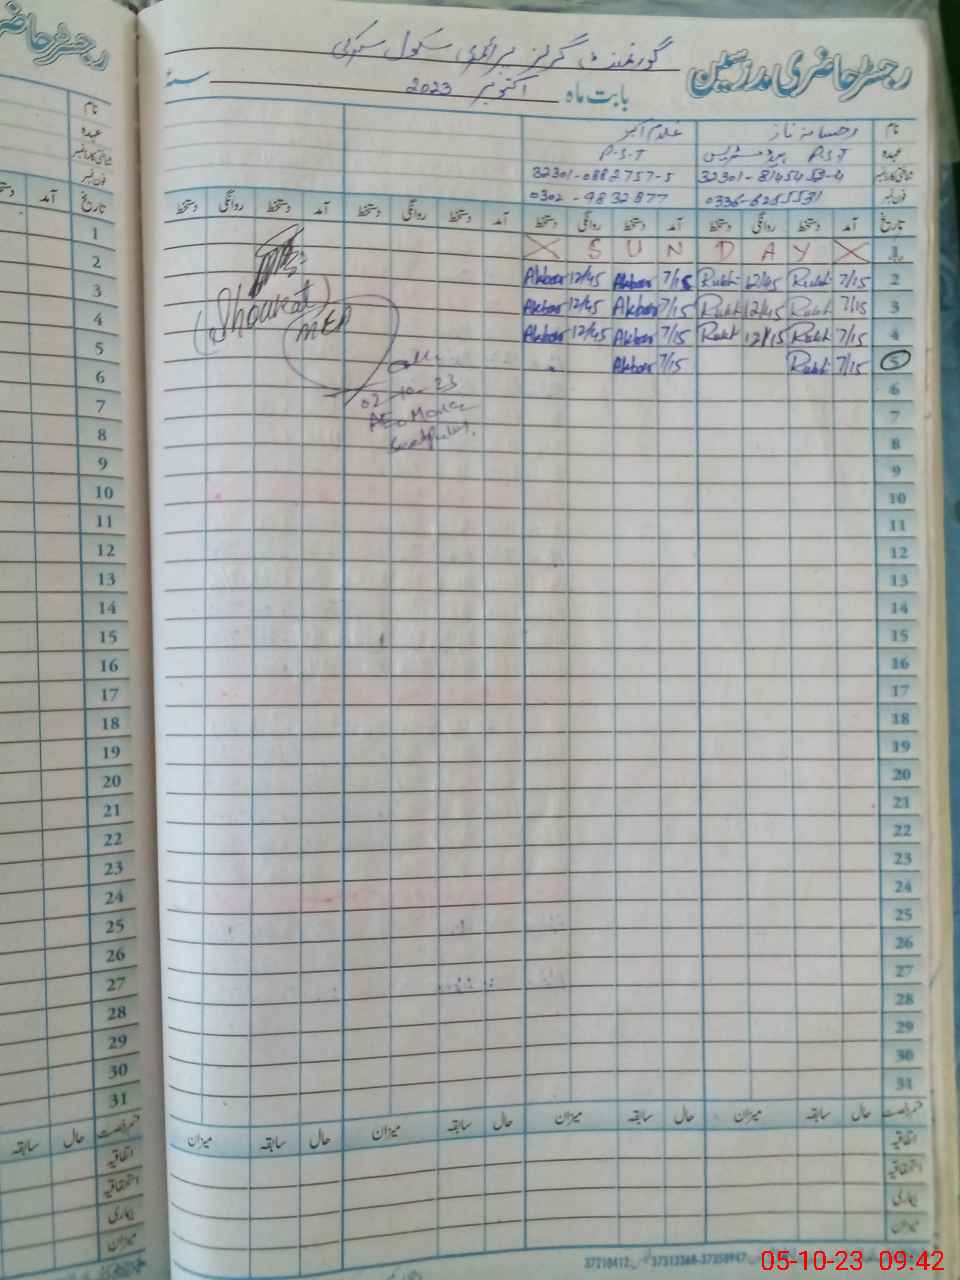 رجسٹر حاضری مدرسین گورنمنٹ گرلز پرائمری سکول
بابت ماہ اکتوبر 2023 سنہ
نام ناز غلام اکبر
عہدہ P.S.T P.S.T
شناختی کارڈ نمبر 32301-8145453-4 32301-0882757-5
فون نمبر 0336-6255531 0302-9832877
تاریخ آمد دستخط روانگی دستخط آمد دستخط روانگی دستخط آمد دستخط روانگی دستخط آمد دستخط روانگی دستخط
X S U N D A Y X 1
Akbar 12/45 Akbar 7/15 Rukh 12/45 Rukh 7/15 2
Akbar 12/45 Akbar 7/15 Rukh 12/45 Rukh 7/15 3
Akbar 12/45 Akbar 7/15 Rukh 12/15 Rukh 7/15 4
Akbar 7/15 Rukh 7/15 5
6
7
8
9
10
11
12
13
14
15
16
17
18
19
20
21
22
23
24
25
26
27
28
29
30
31
(Shoukat)
MEA
02-10-23
AEO
قسم رخصت حال سابقہ میزان حال سابقہ میزان حال سابقہ میزان حال سابقہ میزان
اتفاقیہ
استحقاقیہ
بیماری
میزان
37210412 37312368-37358967
رجسٹر حاضری
نام
عہدہ
شناختی کارڈ نمبر
فون نمبر
تاریخ آمد
1
2
3
4
5
6
7
8
9
10
11
12
13
14
15
16
17
18
19
20
21
22
23
24
25
26
27
28
29
30
31
قسم رخصت حال سابقہ
اتفاقیہ
استحقاقیہ
بیماری
میزان
05-10-23 09:42